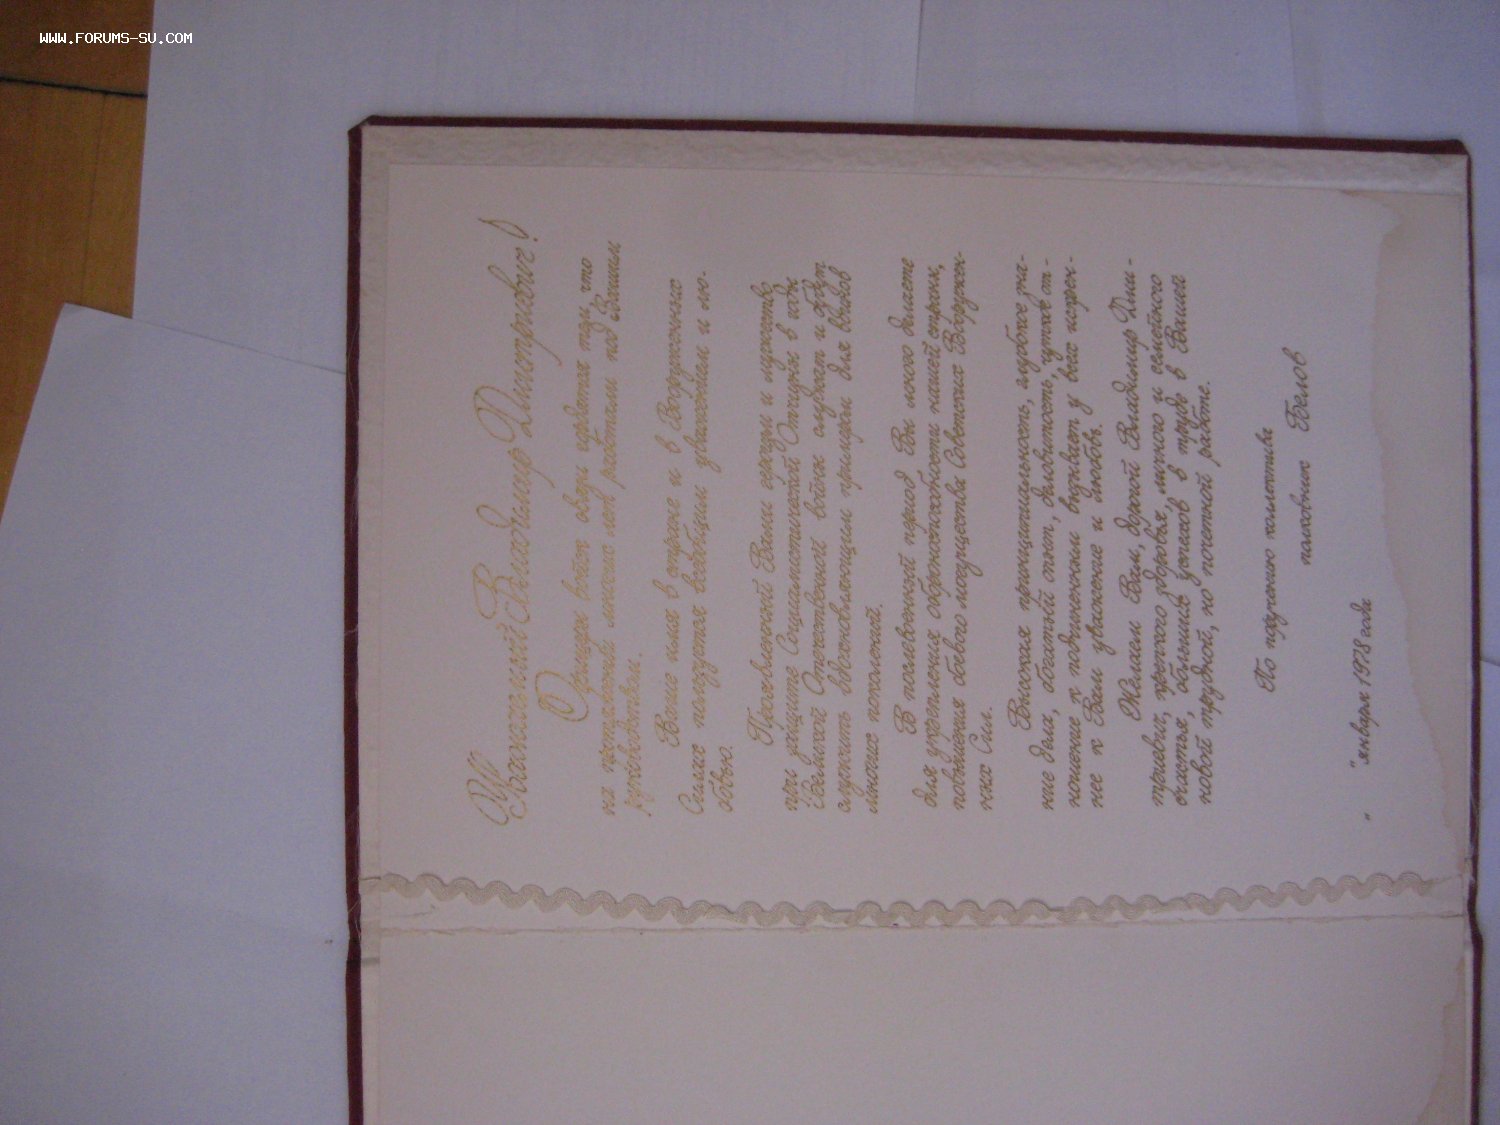 WWW.FORUMS-SU.COM
Уважаемый Владимир Дмитриевич!
Офицеры войск связи гордятся тем, что
на протяжении многих лет работали под Вашим
руководством.
Ваше имя в стране и в Вооруженных
Силах пользуется всеобщим уважением и лю-
бовью.
Проявленный Вами героизм и мужество
при защите Социалистической Отчизны в годы
Великой Отечественной войны служат и будут
служить вдохновляющим примером для воинов
многих поколений.
В послевоенный период Вы много делаете
для укрепления обороноспособности нашей страны,
повышения боевого могущества Советских Вооружен-
ных Сил.
Высокая принципиальность, глубокое зна-
ние дела, обватный опыт, деловитость, чуткое от-
ношение к подчиненным вызывает у всех искрен-
нее к Вам уважение и любовь.
Желаем Вам, дорогой Владимир Дми-
триевич, крепкого здоровья, личного и семейного
счастья, больших успехов в труде в Вашей
новой трудной, но почетной работе.
По поручению коллектива
полковник Белов
" "января 1978 года